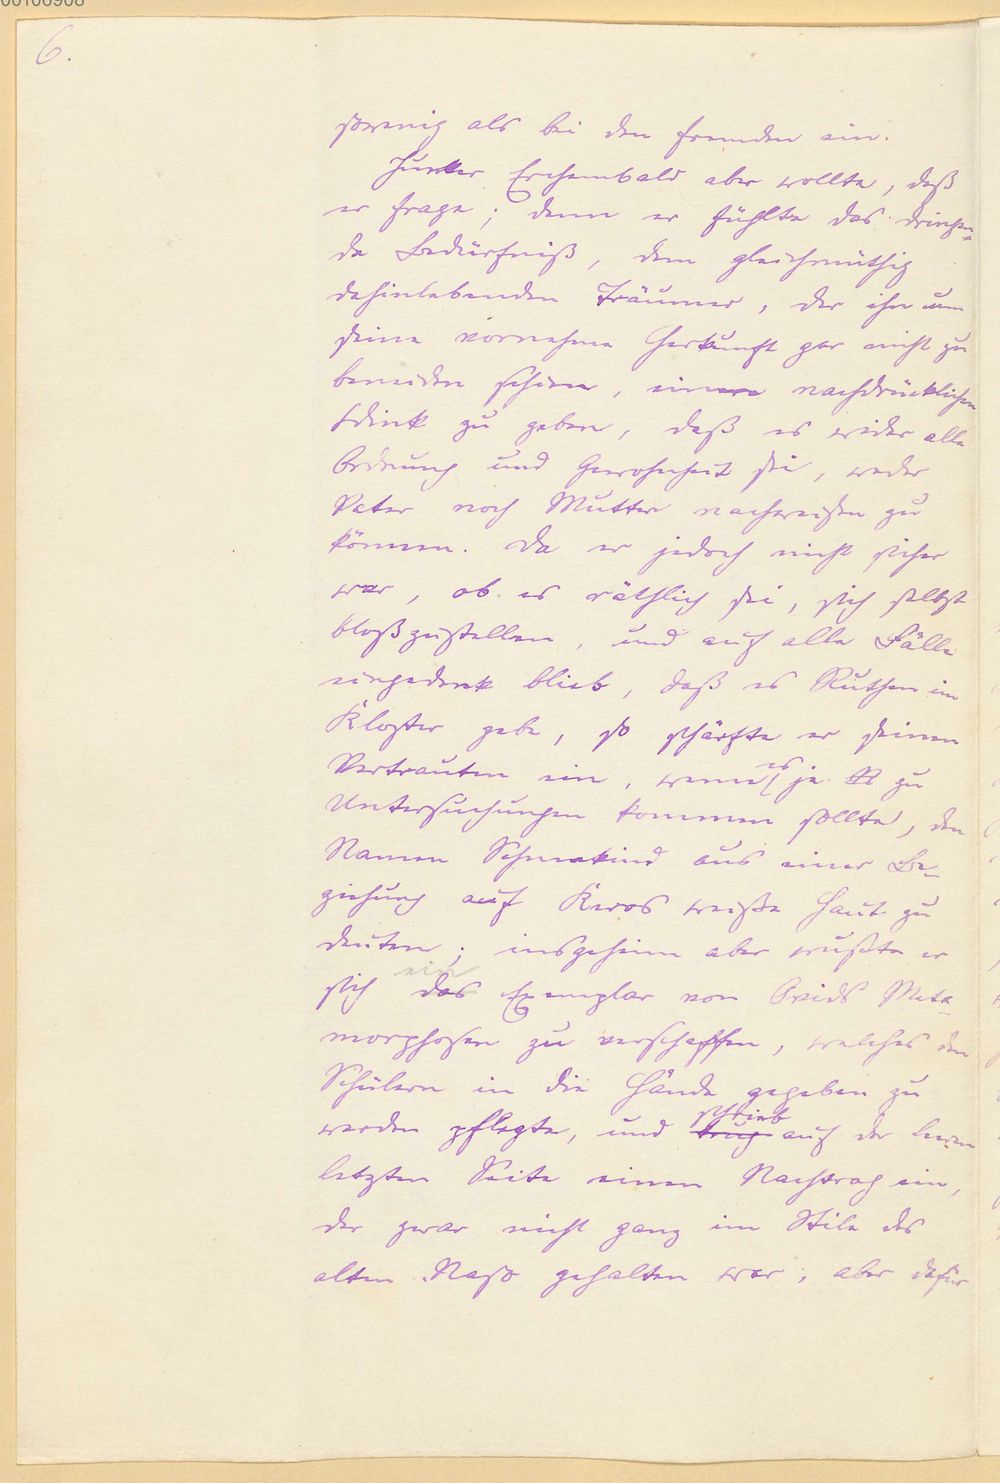 00106908
6.
sowenig als bei den Fremden ein.
Junker Erchembald aber wollte, daß
er frage; denn er fühlte das dringen-
de Bedürfniß, dem gleichmüthig
dahinlebenden Träumer, der ihn um
seine vornehme Herkunft gar nicht zu
beneiden schien, einen nachdrücklichen
Wink zu geben, daß es wider alle
Ordnung und Gewohnheit sei, weder
Vater noch Mutter nachweisen zu
können. Da er jedoch nicht sicher
war, ob es räthlich sei, sich selbst
bloßzustellen, und auf alle Fälle
eingedenk blieb, daß es Ruthen im
Kloster gebe, so schärfte er seinen
Vertrauten ein, wenn es je zu
Untersuchungen kommen sollte, den
Namen Schneekind aus einer Be-
ziehung auf Keros weiße Haut zu
deuten; insgeheim aber wußte er
sich ein das Exemplar von Ovids Meta-
morphosen zu verschaffen, welches den
Schülern in die Hände gegeben zu
werden pflegte, und trug schrieb auf der leeren
letzten Seite einen Nachtrag ein,
der zwar nicht ganz im Stile des
alten Naso gehalten war, aber dafür